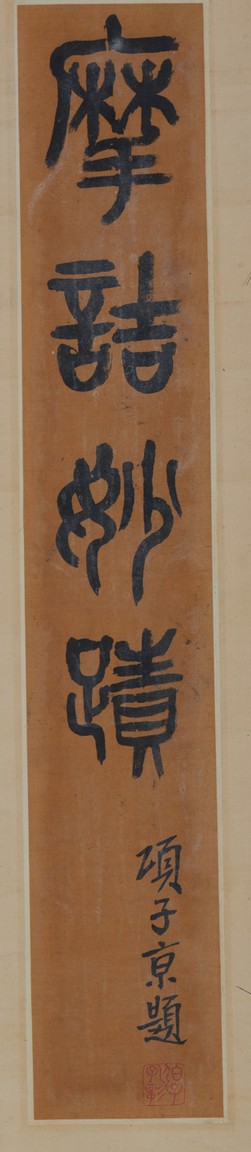 摩詰妙蹟
項子京題